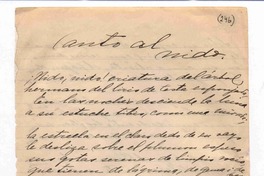 (296)
Canto al
nido.
¡Nido, nido! criatura del árbol,
hermano del lirio de
En las noches desciende la luna
a su estuche tibio, como una
la estrella en el claro dedo de su rayo
le desliza sobre el plumón
sus gotas serenas de limpio
que tienen de lágrima,